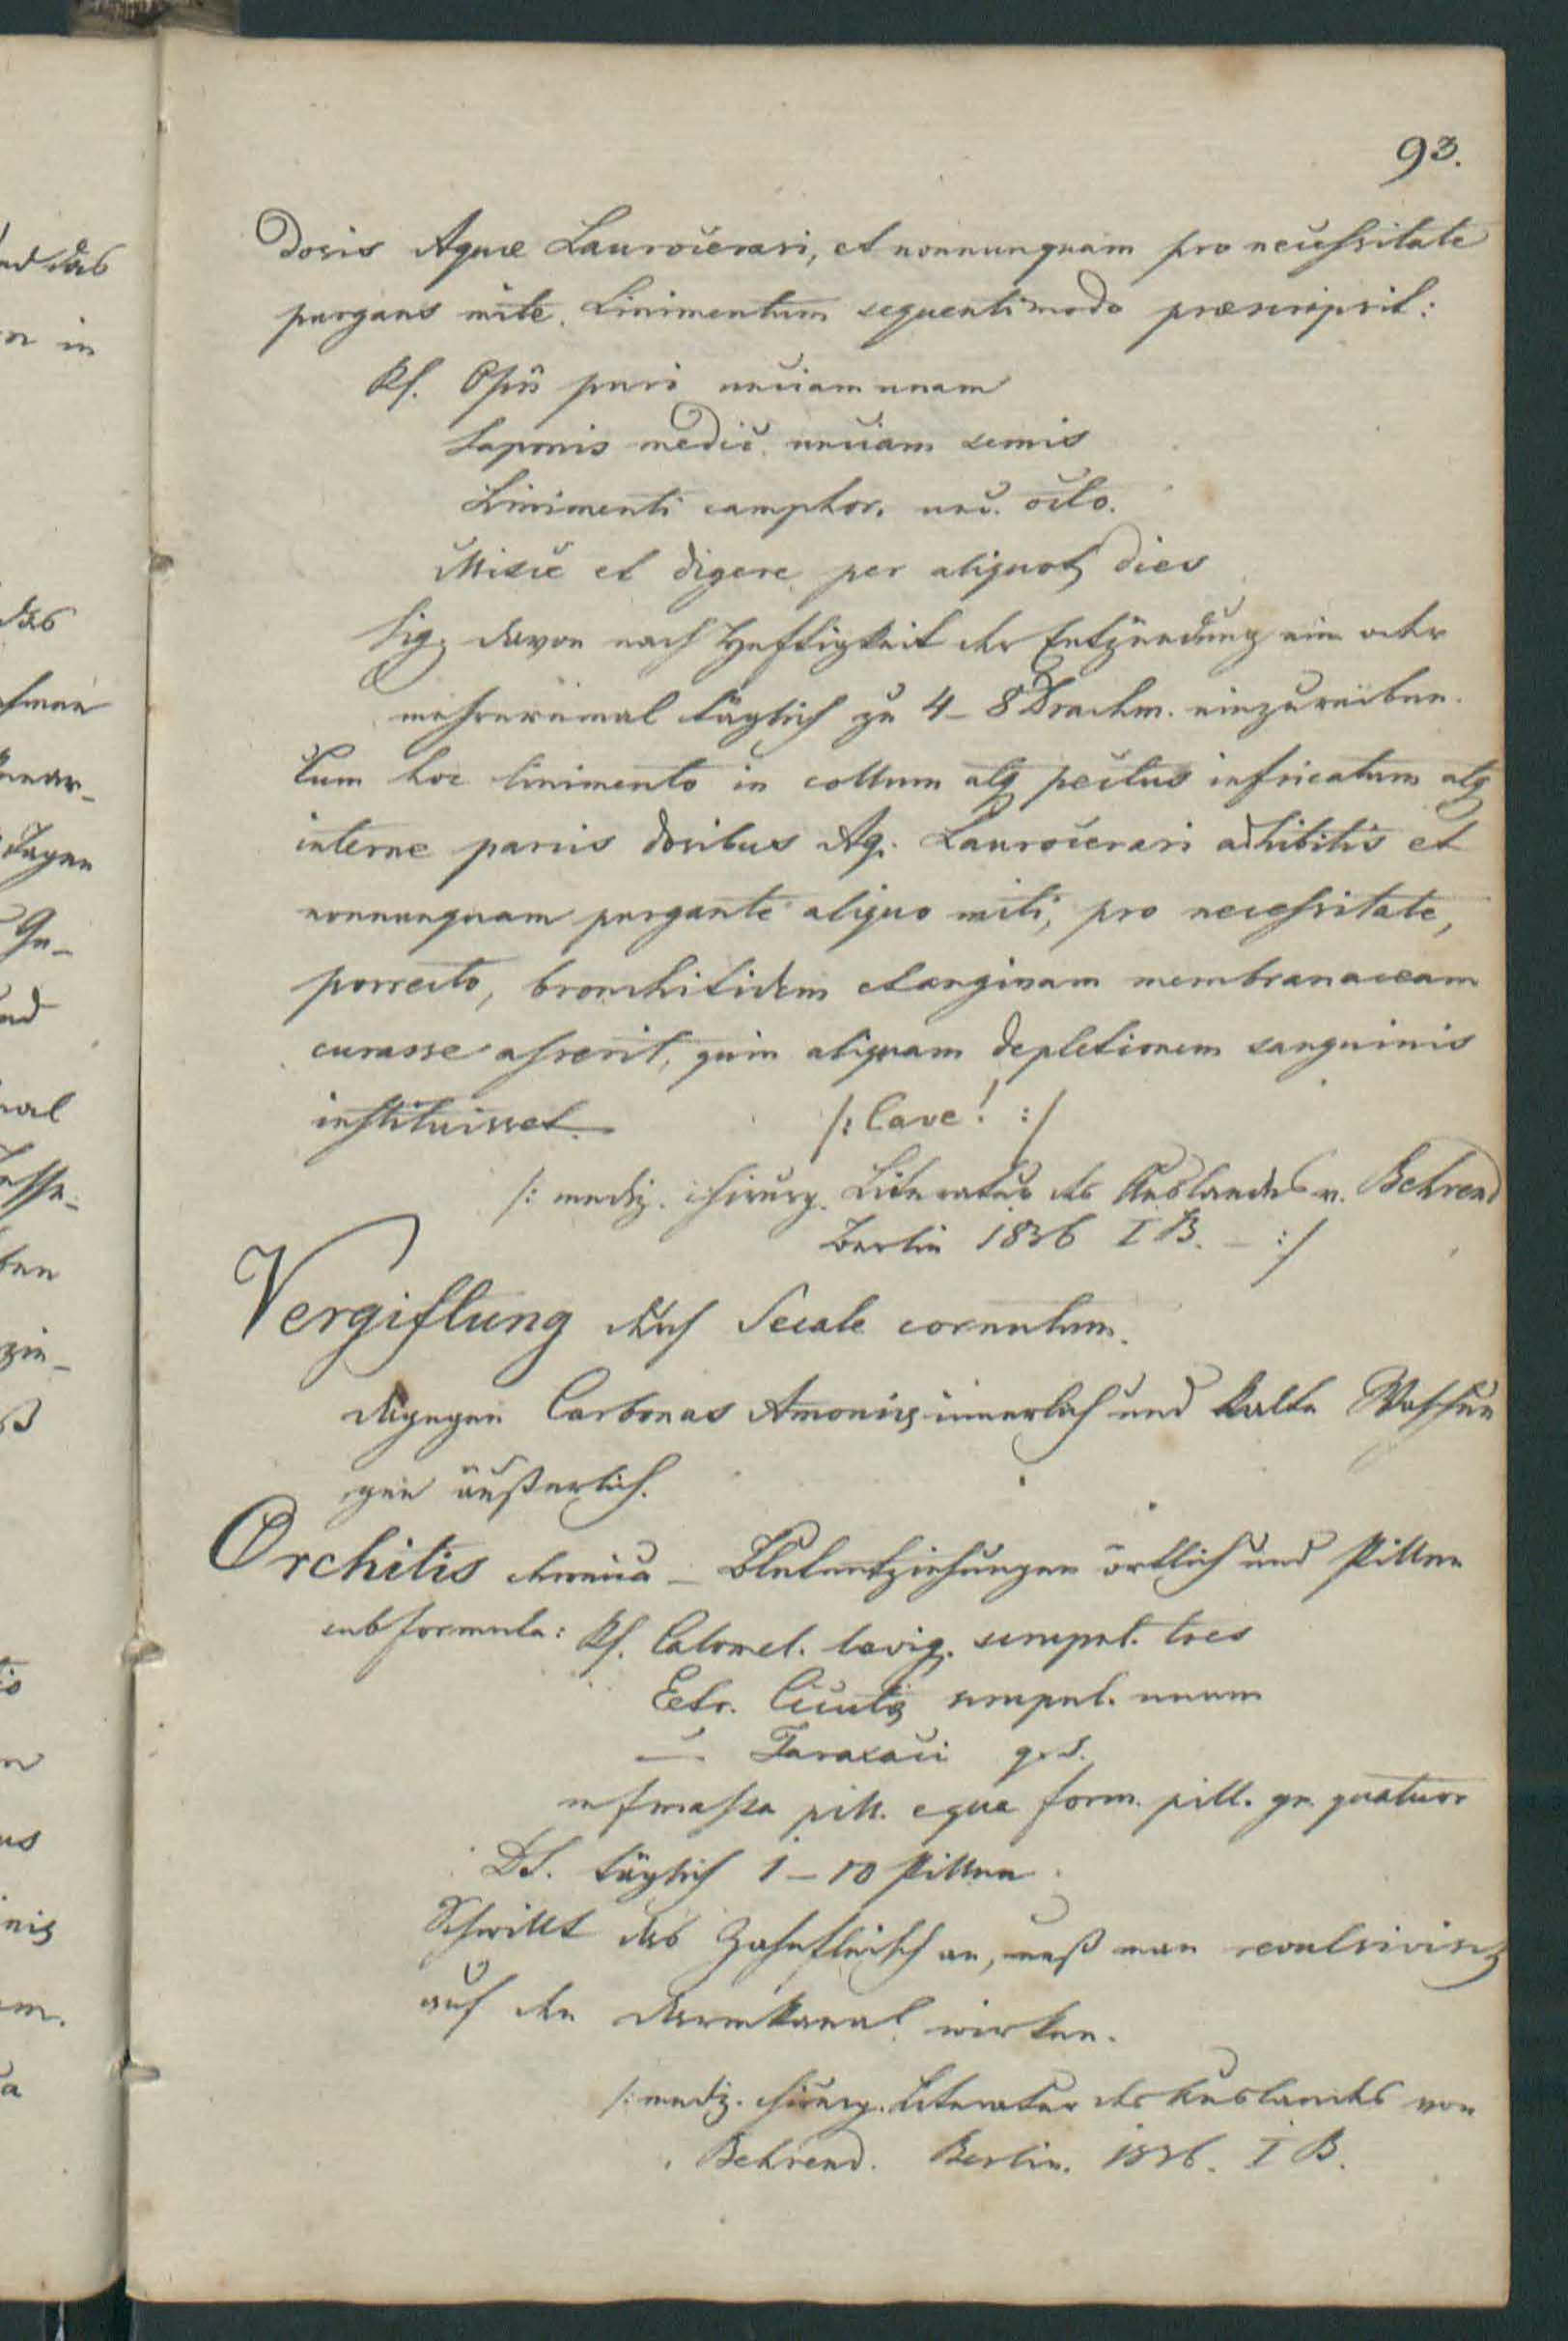 93.
Dosis Aquæ Laurocerasi, et nonnunquam pro necessitate
purgans mite. Linimentum sequenti modo præscripsit:
Rf. Opii puri unciam unam
Saponis medic. unciam semis
Linimenti camphor. unc. octo.
Misce et digere per aliquot dies
Sig. davon nach Heftigkeit der Entzündung ein oder
mehreremal täglich zu 4–8 Drachm. einzureiben.
Cum hoc linimento in collum atq pectus infricatum atq
interne parvis dosibus Aq. Laurocerasi adhibitis et
nonnunquam purgante aliquo miti, pro necessitate,
porrecto, bronchitidem et anginam membranaceam
curasse asserit, quin aliquam depletionem sanguinis
instituisset. /: Cave! :/
/: mediz. chirurg. Literatur des Auslandes v. Behrend
Berlin 1836 I B. – :/
Vergiftung durch Secale cornutum.
dagegen Carbonas Amoniæ innerlich und kalte Waschun
gen äußerlich.
Orchitis chronica – Blutentziehungen örtlich und Pillen
sub formula: Rf. Calomel. lævig. scrupul. tres
Extr. Cicutæ scrupul. unum
— Taraxaci q. s.
m f massa pill. e qua form. pill. gr. quatuor
DS. täglich 1–10 Pillen.
Schwillt das Zahnfleisch an, muß man revulsivisch
auf den Darmkanal wirken.
/: mediz. chirurg. Literatur des Auslandes von
Behrend. Berlin. 1836. I B.